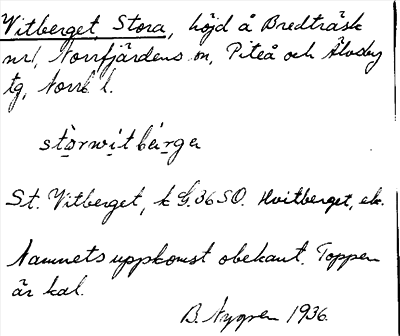 Vitberget, Stora, höjd å Bredträsk
nr 1, Norrfjärdens sn, Piteå och Älvsby
tg, Norrb. l.
stòrwìtbǽrgə
St. Vitberget, k G. 36 SO. Hvitberget, ek.
Namnets uppkomst obekant. Toppen
är kal.
B. Nygren 1936.